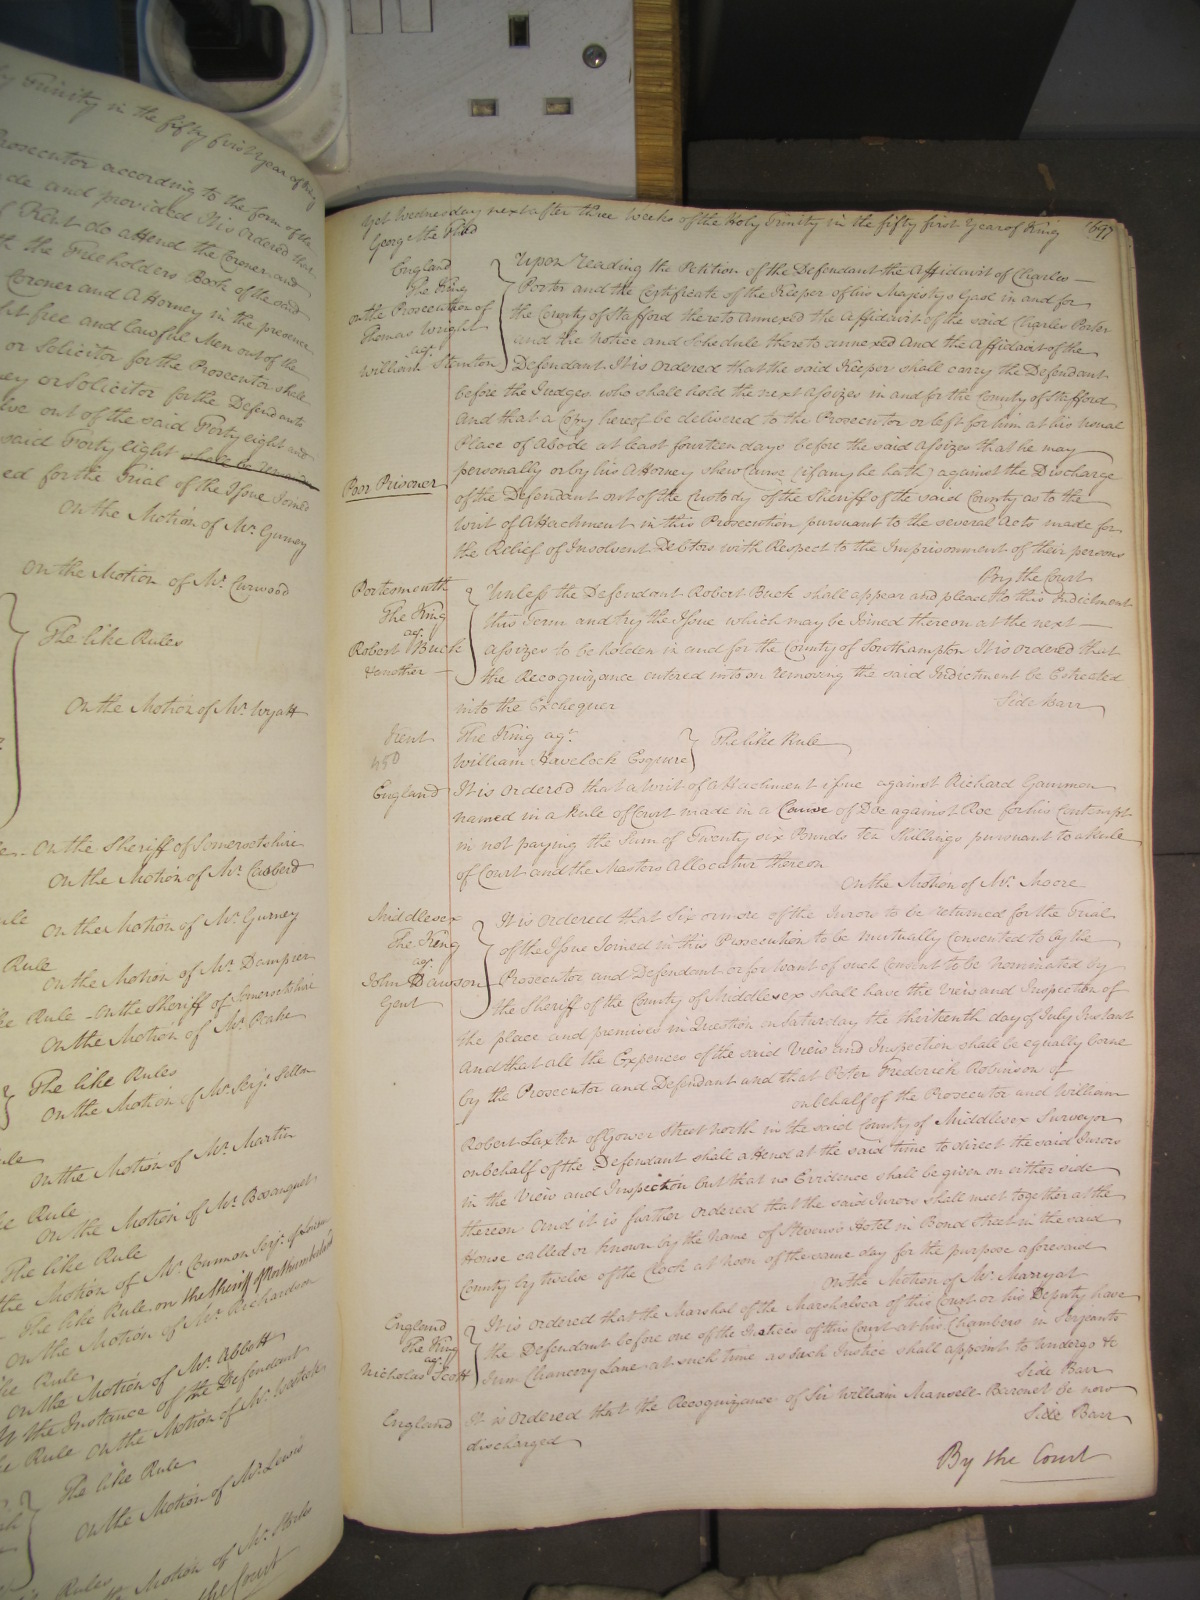 by Trinity in the fifty first Year of King
Prosecutor according to the form of the
made and provided It is Ordered that
of Kent do attend the Coroner and
the Freeholders Book of the said
Coroner and Attorney in the presence
free and lawful Men out of the
or Solicitor for the Prosecutor shall
or Solicitor for the Defendants
out of the said Forty eight and
said Forty eight shall be
for the Trial of the Issue Joined
On the Motion of Mr. Gurney
On the Motion of Mr. Curwood
The like Rules
On the Motion of Mr. Wyatt
On the Sheriff of Somersetshire
On the Motion of Mr. Casberd
On the Motion of Mr. Gurney
Rule
On the Motion of Mr. Dampier
Rule - On the Sheriff of Somersetshire
On the Motion of Mr. Peake
The like Rules
On the Motion of Mr. Serjt. Sellon
On the Motion of Mr. Martin
Rule
On the Motion of Mr. Bosanquet
The like Rule
the Motion of Mr. Common Serjt. of London
The like Rule on the Sheriff of Northumberland
on the Motion of Mr. Richardson
Rule
On the Motion of Mr. Abbott
At the Instance of the Defendant
Rule On the Motion of Mr.
The like Rule
On the Motion of Mr. Lewis
Rules
Motion of Mr. Storks
the Court
Yet Wednesday next after three Weeks of the Holy Trinity in the fifty first Year of King 697
George the Third
England
The King
on the Prosecution of
Thomas Wright
agt.
William Stenton
Upon reading the Petition of the Defendant the Affidavit of Charles
Porter and the Certificate of the Keeper of his Majestys Gaol in and for
the County of Stafford thereto annexed the Affidavit of the said Charles Porter
and the notice and Schedule thereto annexed and the Affidavit of the
Defendant It is ordered that the said Keeper shall carry the Defendant
before the Judges who shall hold the next Assizes in and for the County of Stafford
And that a Copy hereof be delivered to the Prosecutor or left for him at his usual
Place of Abode at least fourteen days before the said Assizes that he may
Poor Prisoner
personally or by his Attorney shew Cause (if any he hath) against the Discharge
of the Defendant out of the Custody of the Sheriff of the said County as to the
Writ of Attachment in this Prosecution pursuant to the several Acts made for
the Relief of Insolvent Debtors with Respect to the Imprisonment of their persons
By the Court
Portesmouth
The King
agt.
Robert Buck
& another
Unless the Defendant Robert Buck shall appear and plead to this Indictment
this Term and try the Issue which may be Joined thereon at the next
Assizes to be holden in and for the County of Southampton It is ordered that
the Recognizance entered into on removing the said Indictment be Estreated
into the Exchequer
Side Barr
Kent
450
The King agt.
William Havelock Esquire
The like Rule
England
It is ordered that a Writ of Attachment issue against Richard Gammon
named in a Rule of Court made in a Cause of Doe against Roe for his Contempt
in not paying the Sum of Twenty six Pounds ten Shillings pursuant to a Rule
of Court and the Masters Allocatur thereon
On the Motion of Mr. Moore
Middlesex
The King
agt.
John Dawson
Gent
It is ordered that Six or more of the Jurors to be returned for the Trial
of the Issue Joined in this Prosecution to be mutually consented to by the
Prosecutor and Defendant or for want of such Consent to be nominated by
the Sheriff of the County of Middlesex shall have the View and Inspection of
the place and premises in Question on Saturday the thirteenth day of July Instant
And that all the Expences of the said View and Inspection shall be equally borne
by the Prosecutor and Defendant and that Peter Frederick Robinson of
on behalf of the Prosecutor and William
Robert Laxton of Gower Street North in the said County of Middlesex Surveyor
on behalf of the Defendant shall attend at the said time to direct the said Jurors
in the View and Inspection but that no Evidence shall be given on either side
thereon And it is further ordered that the said Jurors shall meet together at the
House called or known by the Name of Stevens's Hotel in Bond Street in the said
County by twelve of the Clock at noon of the same day for the purpose aforesaid
On the Motion of Mr. Marryat
England
The King
agt.
Nicholas Scott
It is ordered that the Marshal of the Marshalsea of this Court or his Deputy have
the Defendant before one of the Justices of this Court at his Chambers in Serjeants
Inn Chancery Lane at such time as such Justice shall appoint to undergo &c
Side Barr
England
It is ordered that the Recognizance of Sir William Mansell Baronet be now
discharged
Side Barr
By the Court